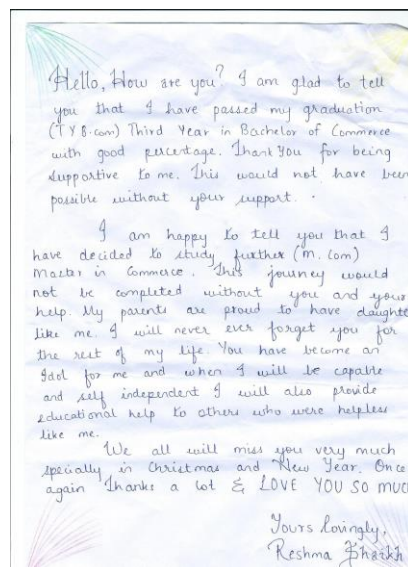 Hello, How are you? I am glad to tell
you that I have passed my graduation
(T Y B.com) Third Year in Bachelor of Commerce
with good percentage. Thank You for being
supportive to me. This would not have been
possible without your support.
I am happy to tell you that I
have decided to study further (M. Com)
Master in Commerce. This journey would
not be completed without you and your
help. My parents are proud to have daughter
like me. I will never ever forget you for
the rest of my life. You have become an
Idol for me and when I will be capable
and self independent I will also provide
educational help to others who were helpless
like me.
We all will miss you very much
specially in Christmas and New Year. Once
again Thanks a lot & LOVE YOU SO MUCH
Yours lovingly,
Reshma Shaikh